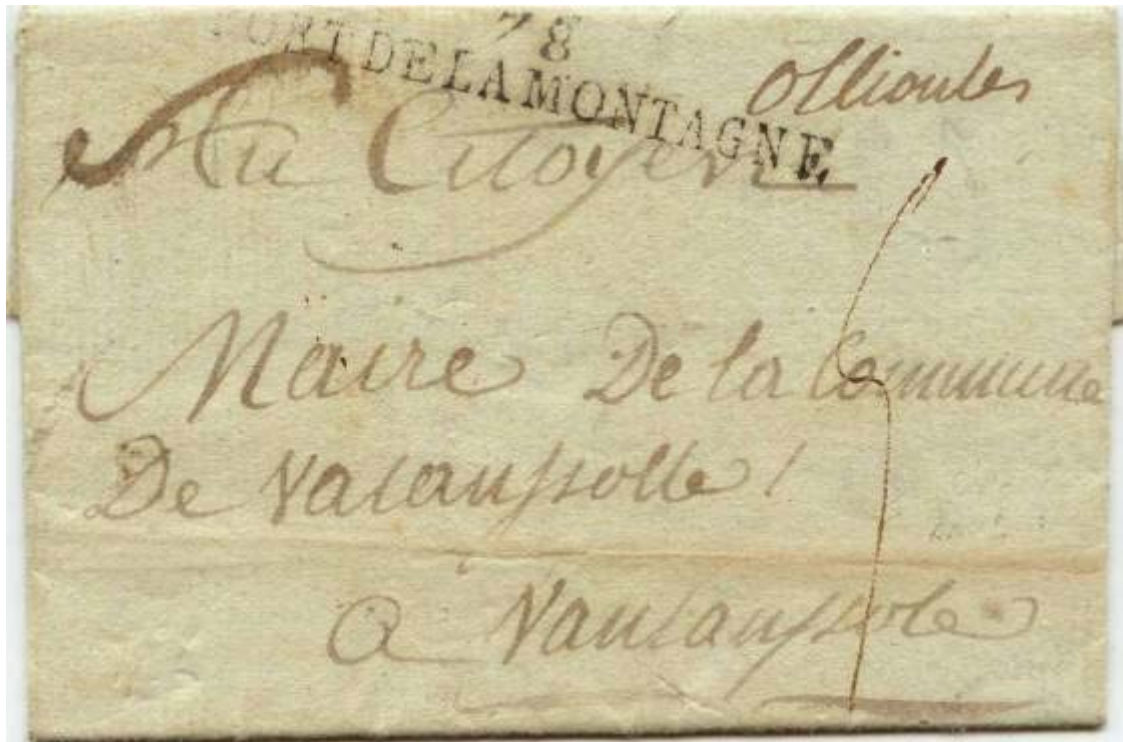 78
PORT DE LA MONTAGNE
ollioules
Au Citoyen
Maire De la Commune
De Valaussolle
a Vaulaussole